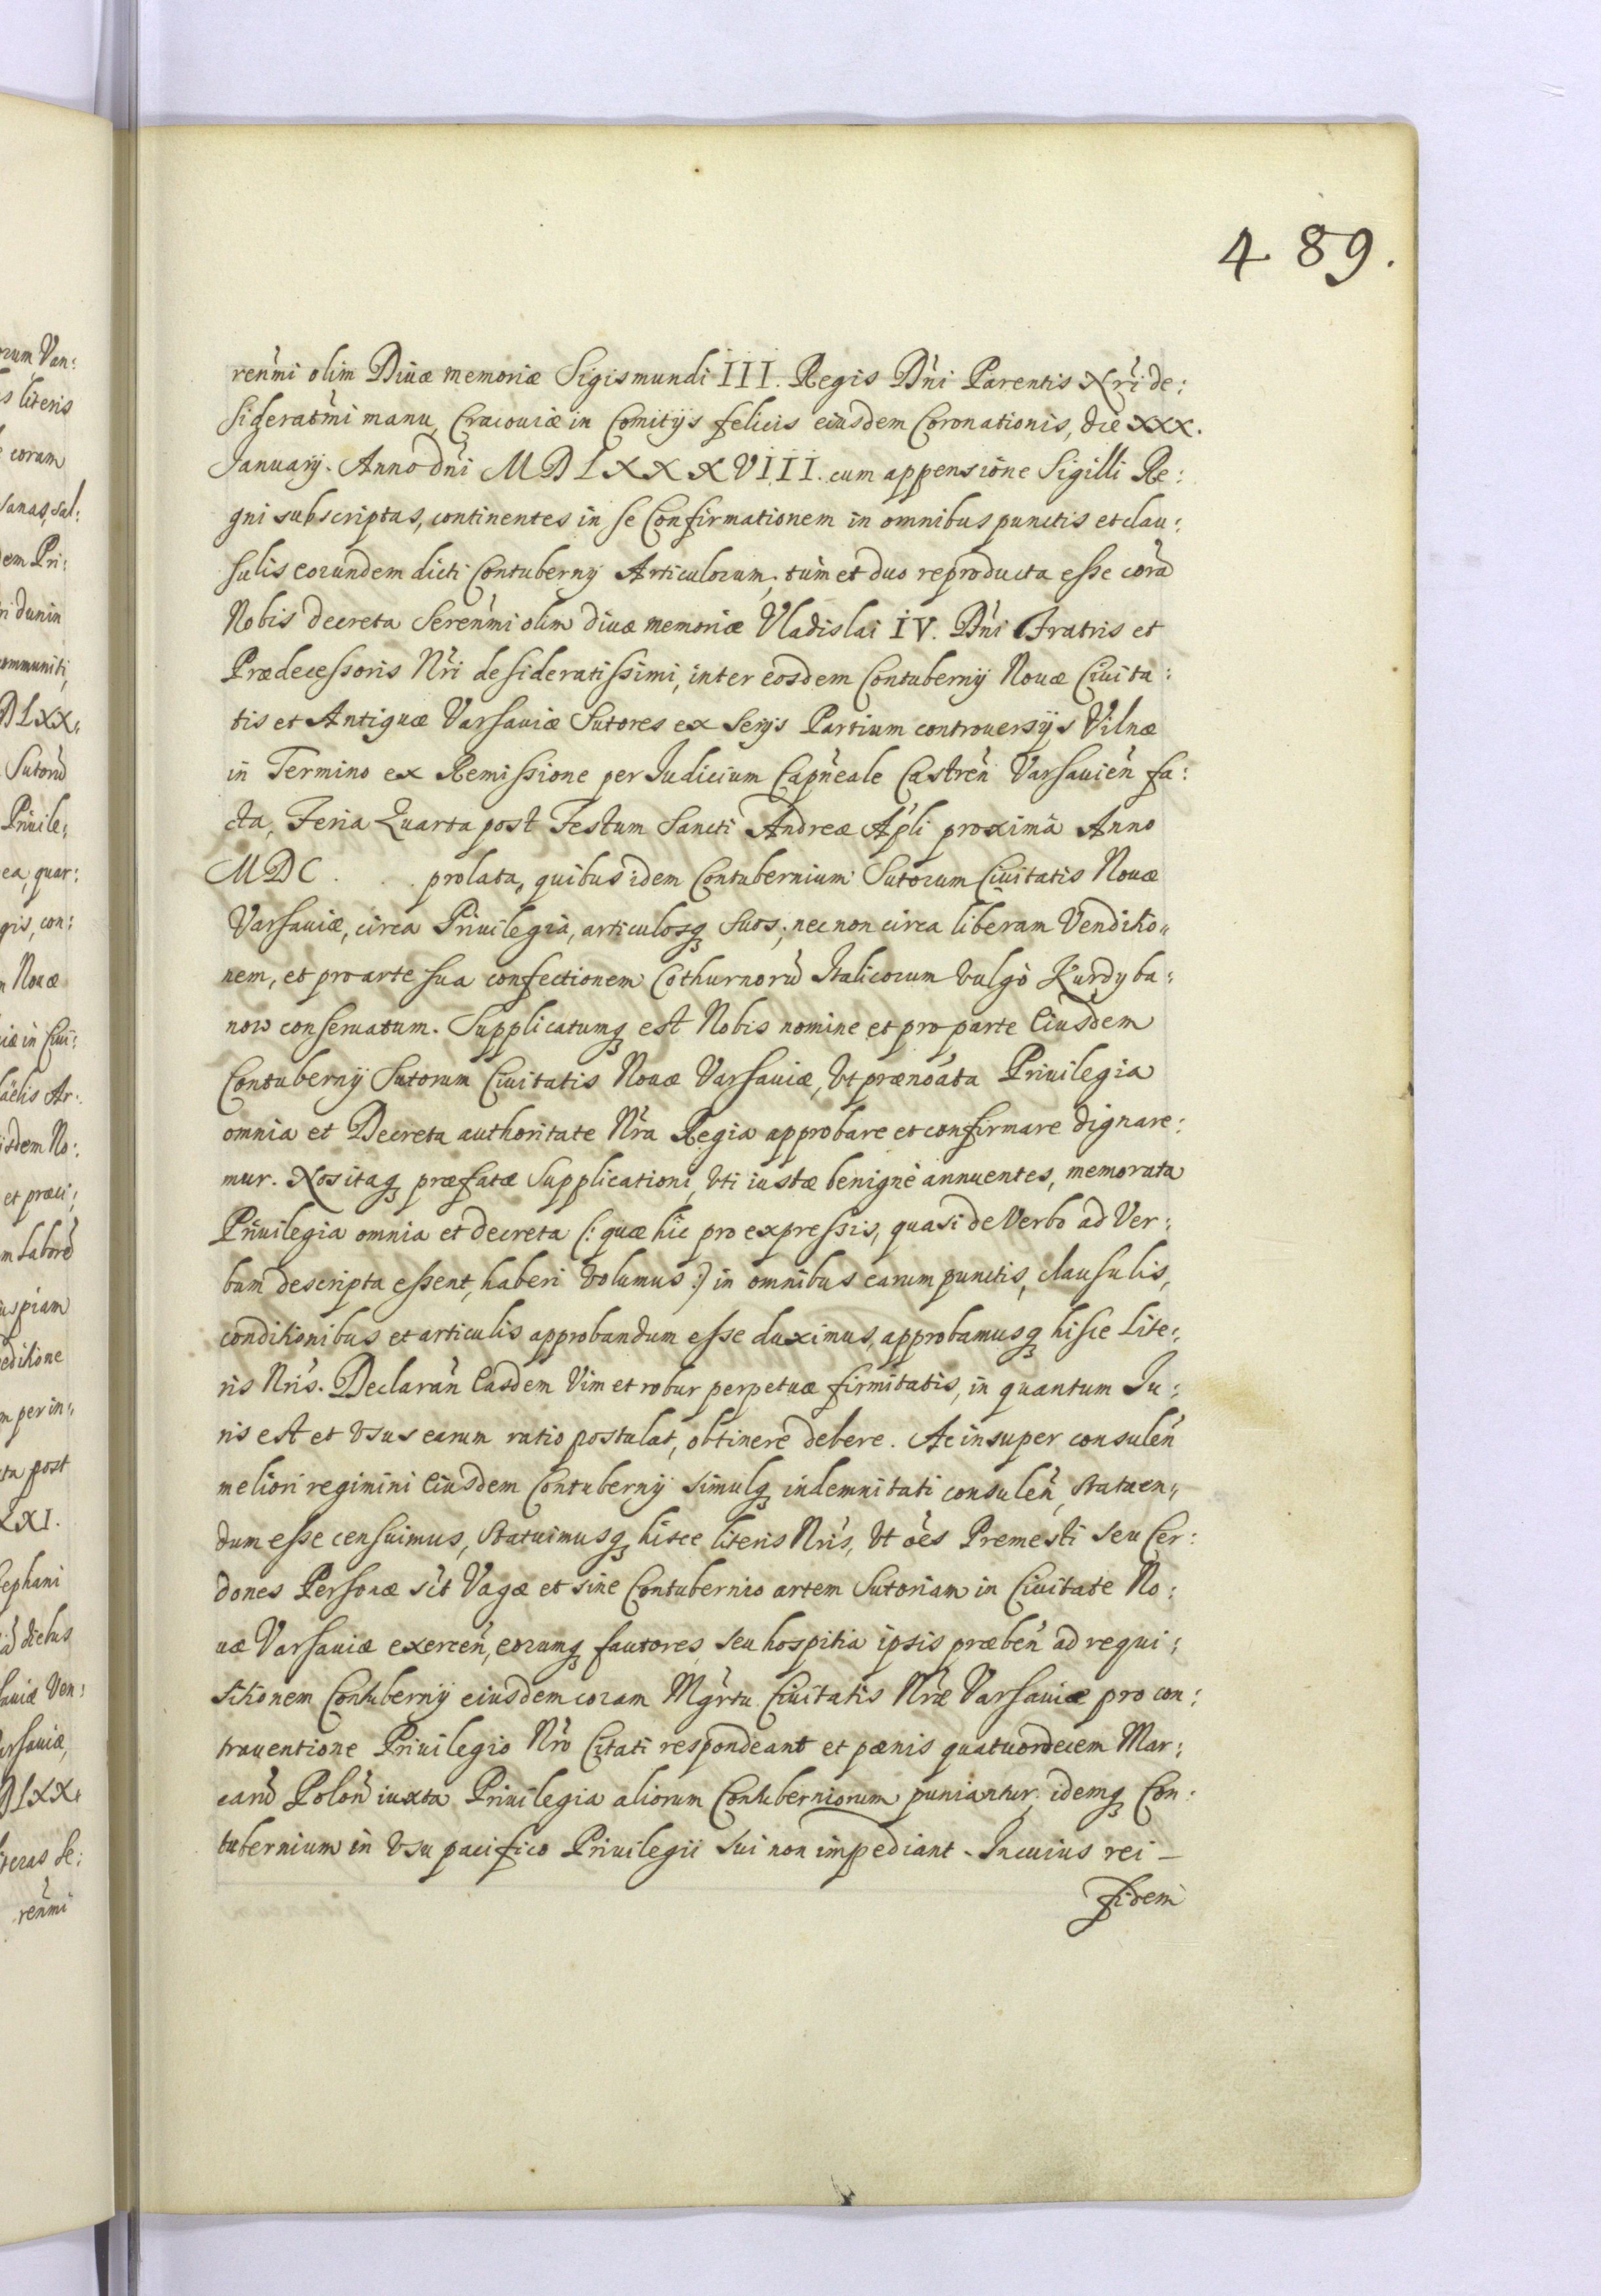 489.
renmi olim Diuæ memoriæ Sigismundi III. Regis Dni Parentis Nri de:
sideratmi manu, Cracouiæ in Comitijs felicis eiusdem Coronationis, die XXX.
Januarij. Anno dni MDLXXXVIII. cum appensione Sigilli Re:
gni subscriptas, continentes in se Confirmationem in omnibus punctis et clau:
sulis eorundem dicti Contubernij Articulorum, tum et duo reproducta esse corã
Nobis decreta Serenmi olim diuæ memoriæ Vladislai IV. Dni Fratris et
Prædecessoris Nri desideratissimi, inter eosdem Contubernij Nouæ Ciuita:
tis et Antiquæ Varsauiæ Sutores ex serijs Partium controuersijs Vilnæ
in Termino ex Remissione per Judicium Capneale Castren Varsauien fa:
cta, Feria Quarta post Festum Sancti Andreæ Apli proxima Anno
MDC . . . prolata, quibus idem Contubernium Sutorum Ciuitatis Nouæ
Varsauiæ, circa Priuilegia, articulosq suos, nec non circa liberam Venditio=
nem, et pro arte sua confectionem Cothurnorũ Italicorum vulgò Kurdyba:
now conseruatum. Supplicatumq est Nobis nomine et pro parte Eiusdem
Contubernij Sutorum Ciuitatis Nouæ Varsauiæ, Vt prænoata Priuilegia
omnia et Decreta authoritate Nra Regia approbare et confirmare dignare:
mur. Nos itaq præfatæ Supplicationi, vti iustæ benignè annuentes, memorata
Priuilegia omnia et decreta (: quæ hic pro expressis, quasi de Verbo ad Ver:
bum descripta essent, haberi volumus :) in omnibus earum punctis, clausulis,
conditionibus et articulis approbandum esse duximus, approbamusq hisce Lite:
ris Nris. Declaran Easdem Vim et robur perpetuæ firmitatis, in quantum Ju:
ris est et vsus earum ratio postulat, obtinere debere. Ac insuper consulen
meliori regimini Eiusdem Contubernij simulq indemnitati consulen, statuen=
dum esse censuimus, statuimusq hisce literis Nris, Vt oes Premesti seu Cer:
dones Personæ sct Vagæ et sine Contubernio artem Sutoriam in Ciuitate No:
uæ Varsauiæ exercen, eorumq fautores, seu hospitia ipsis præben ad requi:
sitionem Contubernij eiusdem coram Mgrtu Ciuitatis Nræ Varsauiæ pro con:
trauentione Priuilegio Nro Citati respondeant et pænis quatuordecem Mar:
carũ Polon iuxta Priuilegia aliorum Contuberniorum puniantur, idemq Con:
tubernium in vsu pacifico Priuilegii sui non impediant. In cuius rei –
fidem